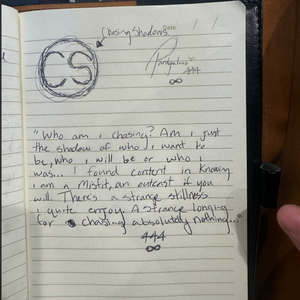 Chasing Shadows
CS
444
∞
"Who am i chasing? Am i just
the shadow of who i want to
be, who i will be or who i
was... I found content in knowing
i am a misfit, an outcast if you
will. There's a strange stillness
i quite enjoy. A strange longing
for chasing absolutely nothing..."
444
∞